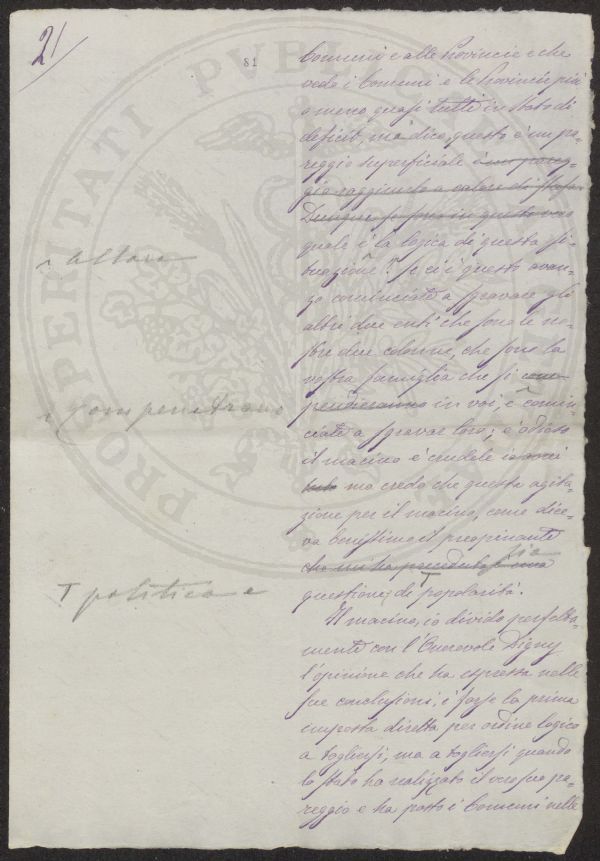 21
81
PROSPERITATI PVBL
Comuni e alle Provincie e che
vedo i Comuni e le Provincie più
o meno quasi tutti in stato di
deficit, ma dico, questo è un pa-
reggio superficiale è un pareg-
gio raggiunto a calore di stufa.
Dunque se poi in questo caso
quale è la logica di questa si-
tuazione? Se ci è questo avan-
zo cominciate a sgravare gli
altri due enti che sono le vo-
stre due colonne, che sono la
vostra famiglia che si com-
in voi, e comin-
ciate a sgravar loro; è odioso
il macino è crudele
ma credo che questa agita-
zione per il macino, come dice-
va benissimo il preopinante
che mi ha preceduto sia una
sia
questione di T popolarità.
Il macino, io divido perfetta-
mente con l'Onorevole Digny
l'opinione che ha espressa nelle
sue conclusioni, è forse la prima
imposta diretta per ordine logico
a togliersi, ma a togliersi quando
lo Stato ha realizzato il vero suo pa-
reggio e ha posto i Comuni nelle
Allora
compenetrano
T politica e